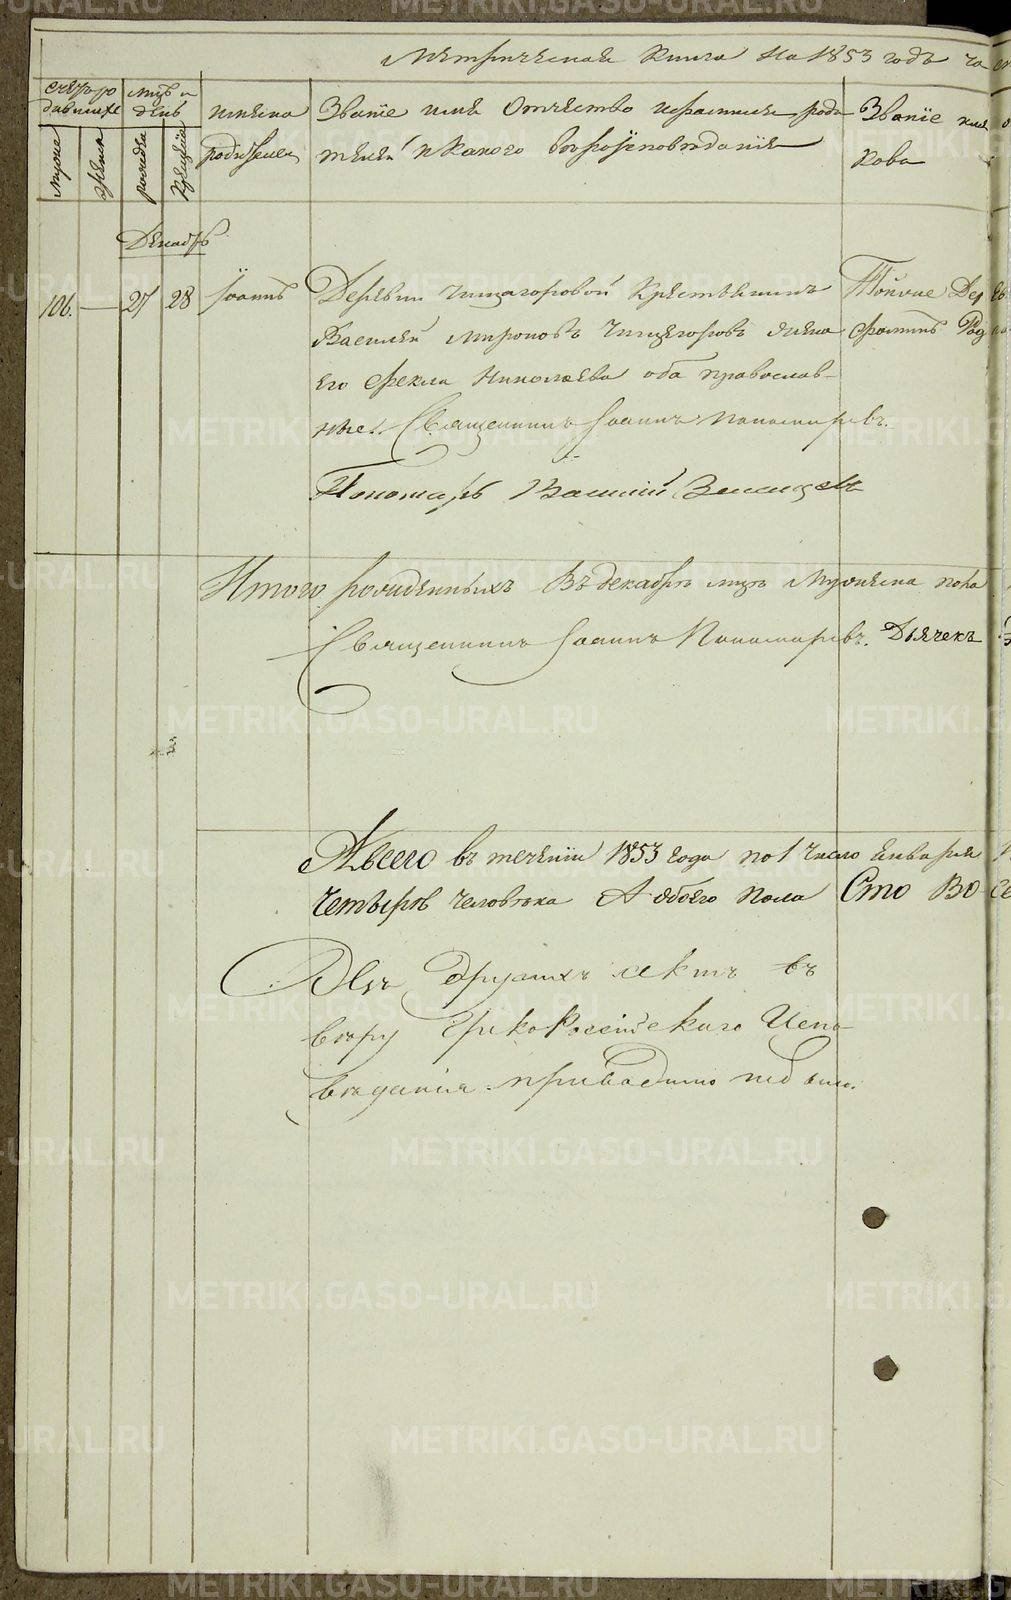 Метрическая Книга На 1853 годъ ча
счетъ ро
дившихся
мцъ и
день
имена
родившихся
Званіе имя Отчество и фамилія роди
телей и какого вѣроисповѣданія
Званіе имя
кова
мужеска
женска
рожденія
крещенія
Декабрь
106. — 27 28 Іоаннъ
Деревни Чищегоровой Крестьянинъ
Василей Мироновъ Чищегоровъ жена
его Фекла Николаева оба православ-
ные. Священникъ Іоаннъ Пономаревъ.
Пономарь Василий
Тойже Дер
Итого рожденныхъ Въ декабрѣ мцѣ Мужеска пола
Священникъ Іоаннъ Пономаревъ. Дьячекъ
А всего въ теченіи 1853 года по 1 число Января
Четыре человѣка А обоего пола Сто Во
Изъ Другихъ сектъ въ
вѣру Грикороссійскаго Испо
вѣданія приводимо небыло.
METRIKI.GASO-URAL.RU